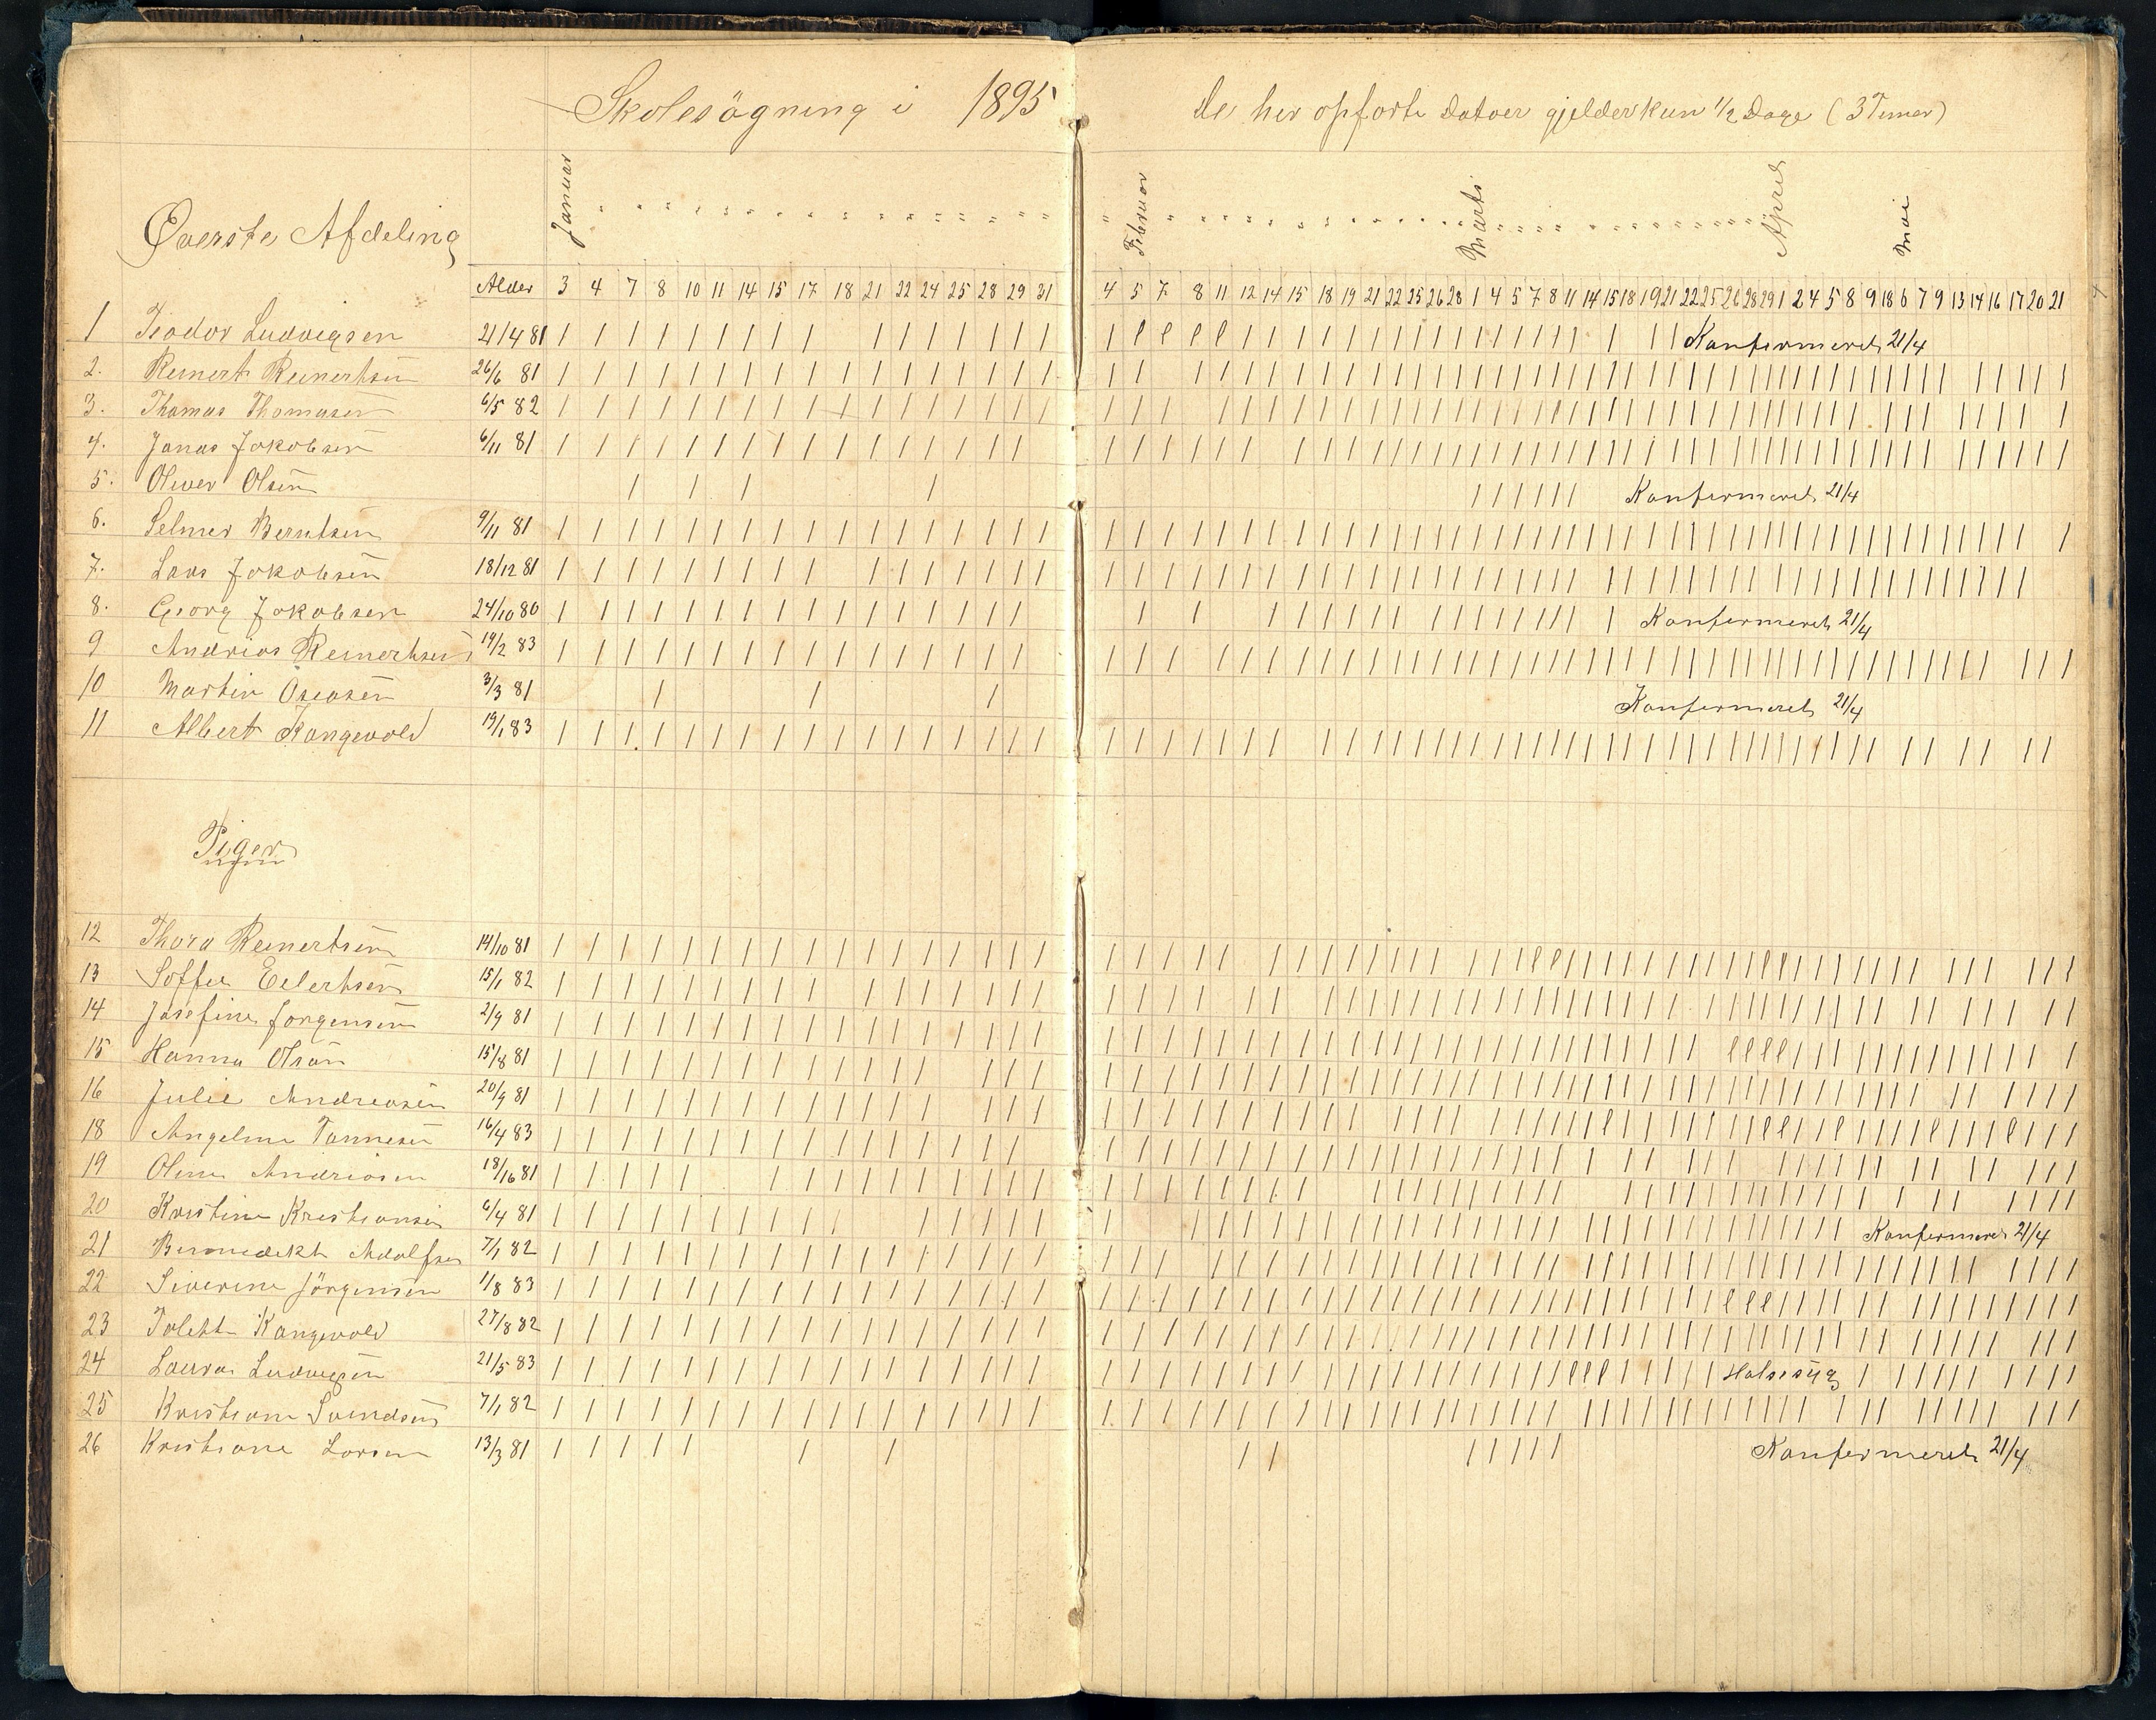 Skolesögning i 1895 de her opförte Datoer gjelder kun 1/2 Dage (3 Timer)
Januar Februar Marts April Mai
Överste Afdeling
Alder 3 4 7 8 10 11 14 15 17 18 21 22 24 25 28 29 31 4 5 7 8 11 12 14 15 18 19 21 22 25 26 28 1 4 5 7 8 11 14 15 18 19 21 22 25 26 28 29 1 2 4 5 8 9 18 6 7 9 13 14 16 17 20 21
1 Teodor Ludvigsen 21/4 81 Konfermeret 21/4
2. Reinert Reinertsen 26/6 81
3. Thomas Thomasen 6/5 82
4. Jonas Jakobsen 6/11 81
5. Oliver Olsen Konfermeret 21/4
6. Selmer Berntsen 9/11 81
7. Lars Jakobsen 18/12 81
8. Georg Jakobsen 24/10 80 Konfermeret 21/4
9 Andreas Reinertsen 19/2 83
10 Martin Oseasen 3/3 81 Konfermeret 21/4
11 Albert Kongevold 19/1 83
Piger
12 Thora Reinertsen 14/10 81
13 Soffie Eilertsen 15/1 82
14 Josefine Jorgensen 2/9 81
15 Hanna Olsen 15/8 81
16 Julie Andreasen 20/9 81
18 Angeline Tønnesen 16/4 83
19 Oline Andreasen 18/16 81
20 Kristine Kristiansen 6/4 81 Konfermeret 21/4
21 Bennedikte Adolfsen 7/1 82
22 Siverine Jörgensen 1/8 83
23 Tolette Kongevold 27/8 82
24 Laura Ludvigsen 21/5 83 Halssyg
25 Kristiane Svendsen 7/1 82
26 Kristiane Larsen 13/3 81 Konfermeret 21/4